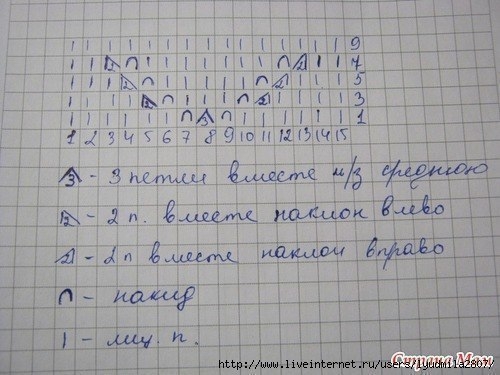 | | | | | | | | | | | | | | | 9
| | 2 ∩ | | | | | | | ∩ 2 | | 7
| | | 2 ∩ | | | | | ∩ 2 | | | 5
| | | | 2 ∩ | | | ∩ 2 | | | | 3
| | | | | | ∩ 3 ∩ | | | | | | 1
1 2 3 4 5 6 7 8 9 10 11 12 13 14 15
3 - 3 петли вместе ч/з среднюю
2 - 2 п. вместе наклон влево
2 - 2 п вместе наклон вправо
∩ - накид
| - лиц. п.
Страна Мам
http://www.liveinternet.ru/users/lyudmila2807/